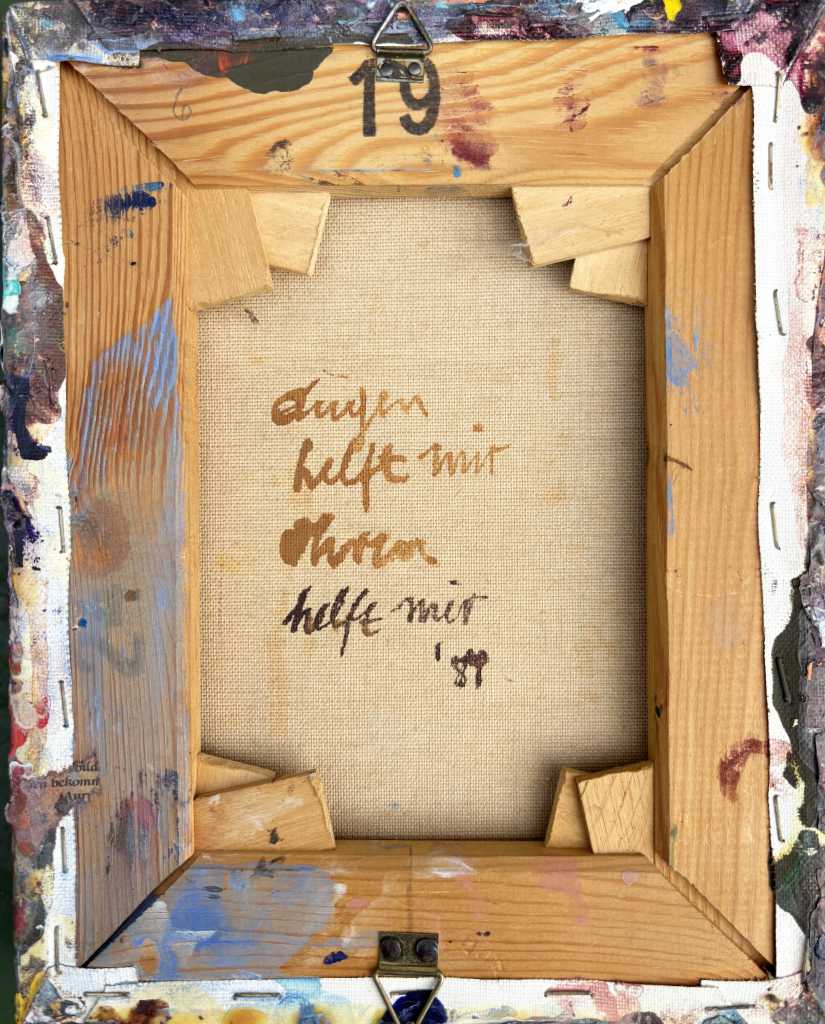 19
Augen
helft mir
Ohren
helft mir
'89
bild
bekomt